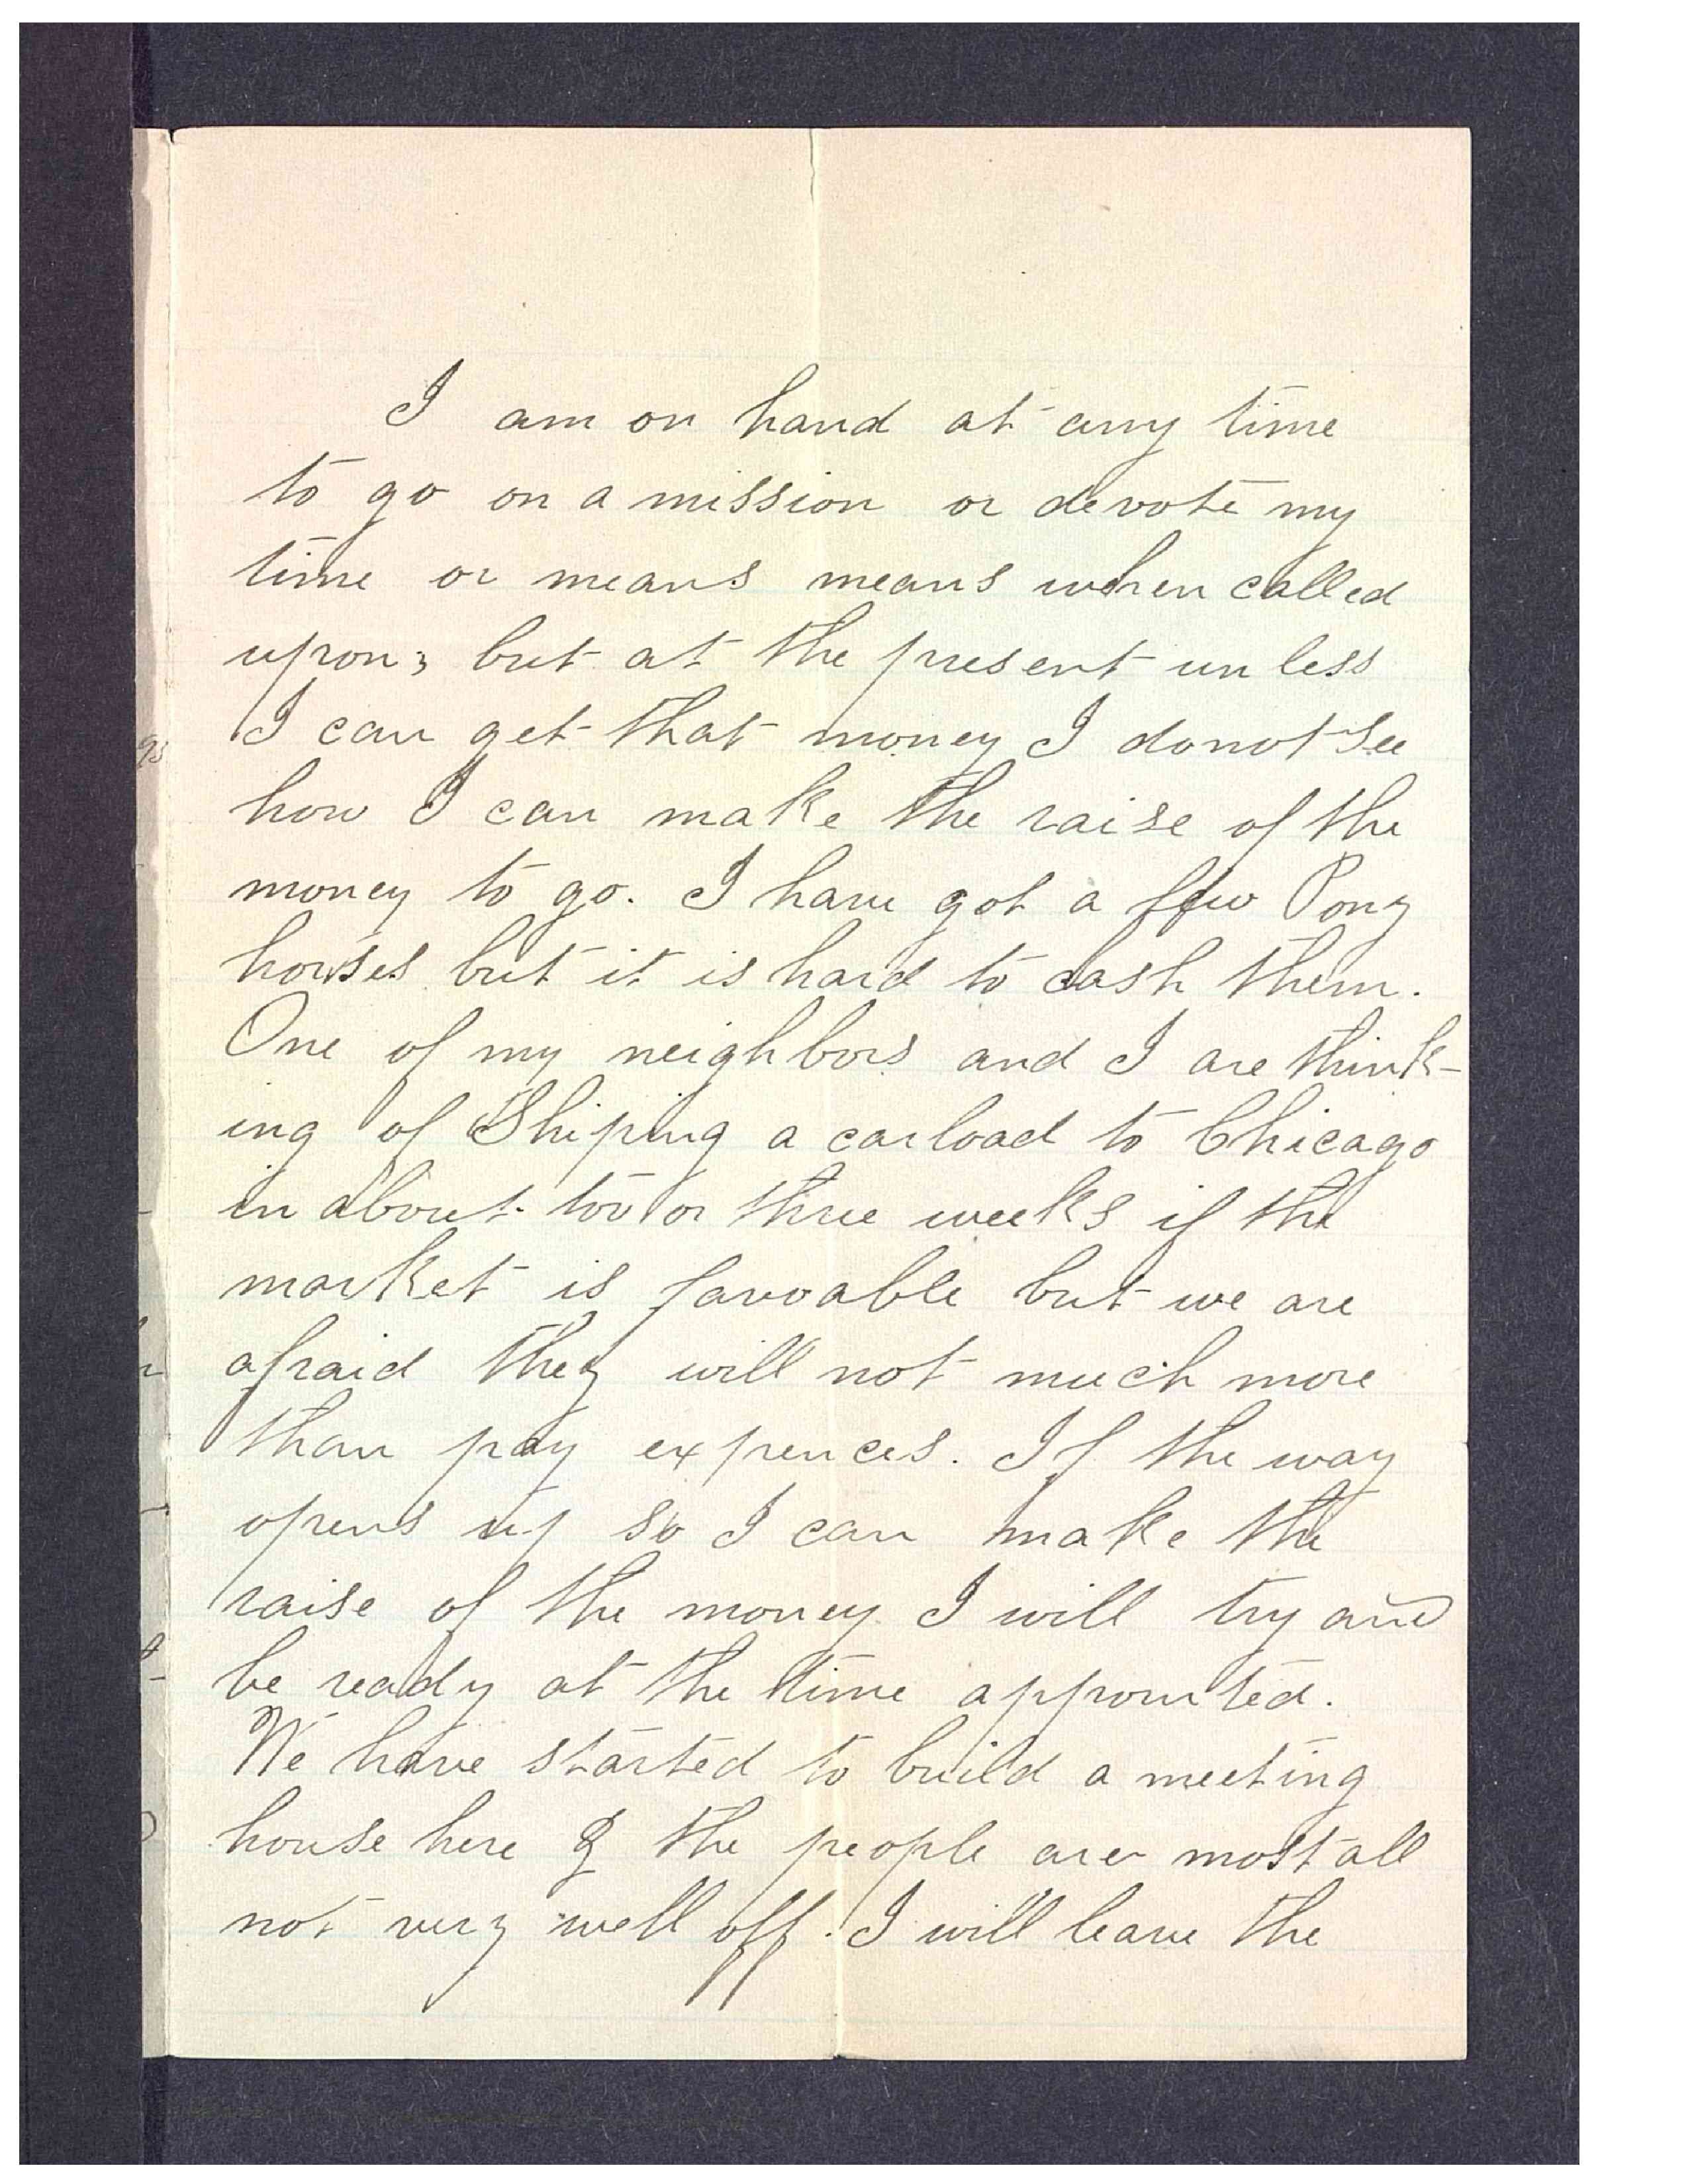 I am on hand at any time
to go on a mission or devote my
time or means means when called
upon; but at the present un less
I can get that money I do not see
how I can make the raise of the
money to go. I have got a few Pony
horses but it is hard to cash them.
One of my neighbors and I are think-
ing of Shiping a carload to Chicago
in about too or three weeks if the
market is favoable but we are
afraid they will not much more
than pay expences. If the way
opens up so I can make the
raise of the money I will try and
be ready at the time appointed.
We have started to build a meeting
house here & the people are most all
not very well off. I will leave the